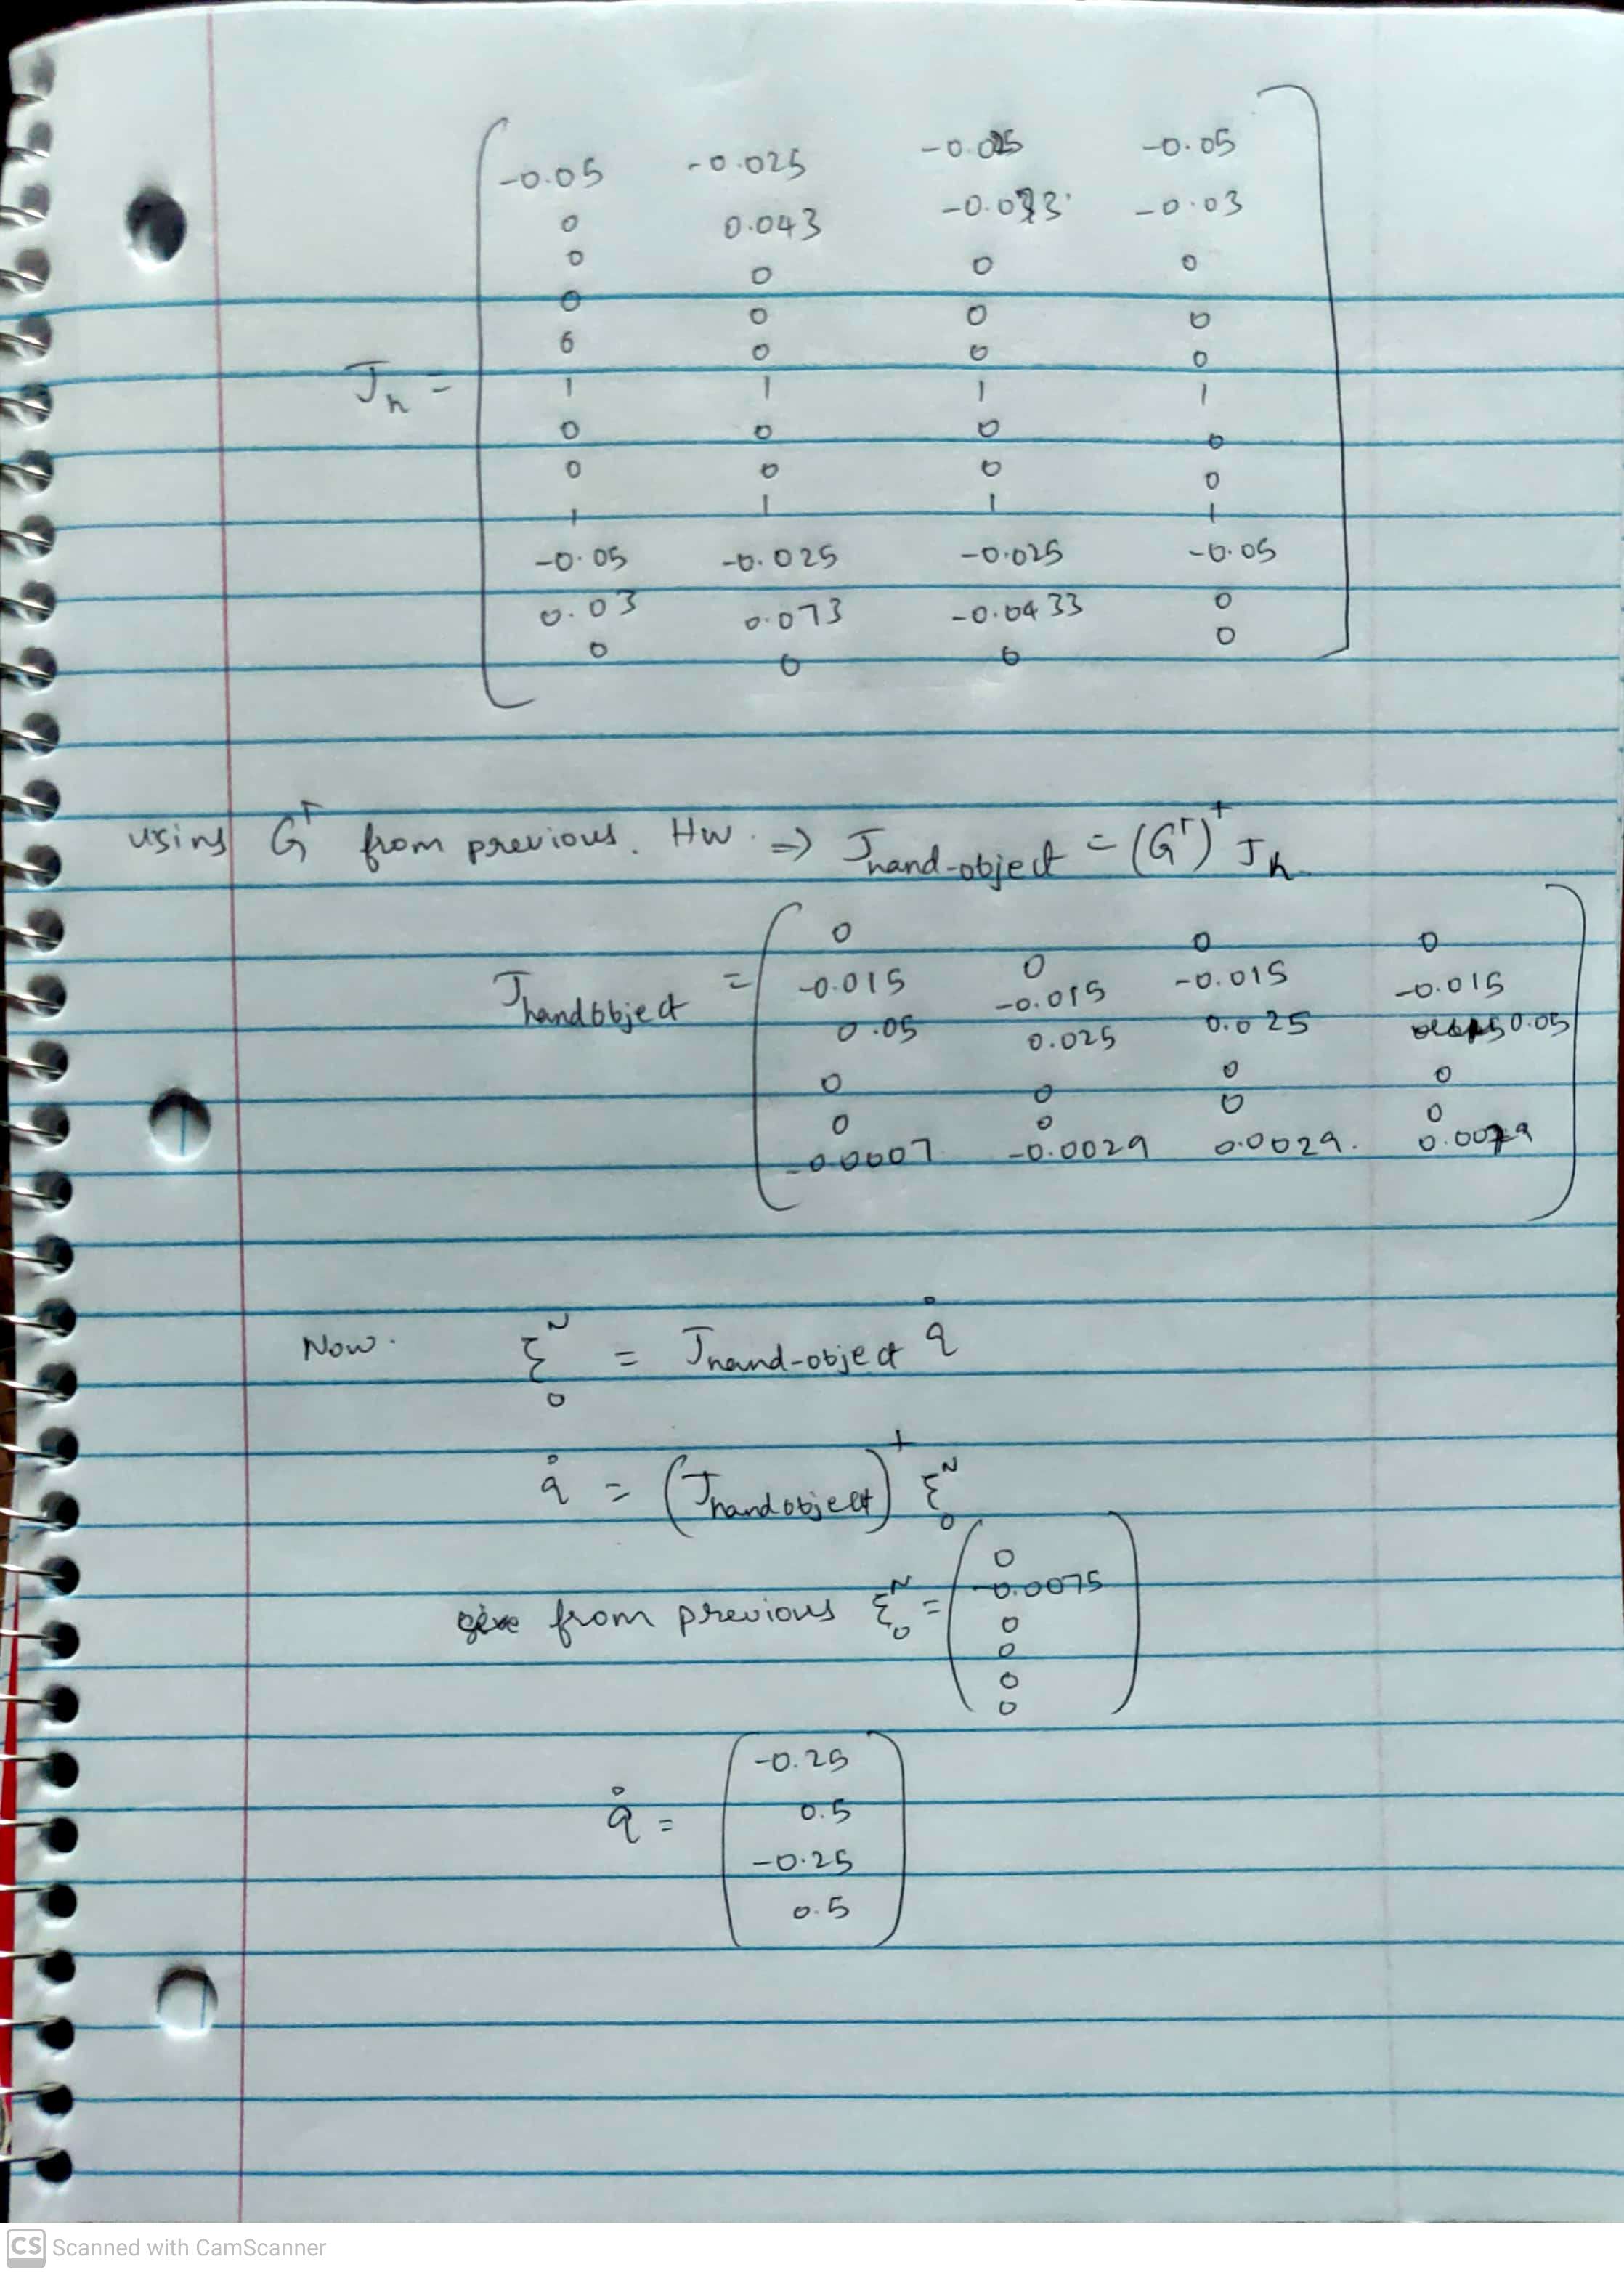 -0.05 -0.025 -0.025 -0.05
0 0.043 -0.03
0 0 0 0
0 0 0 0
0 0 0 0
Jh = 1 1 1 1
0 0 0 0
0 0 0 0
1 1 1 1
-0.05 -0.025 -0.025 -0.05
0.03 0.073 -0.0433 0
0 0 0 0
using G^T from previous. HW. ⇒ J hand-object = (G^T)^+ Jh
0 0 0 0
J handobject = -0.015 -0.015 -0.015 -0.015
0.05 0.025 0.025 0.05
0 0 0 0
0 0 0 0
-0.0007 -0.0029 0.0029.
Now. ξ^N_0 = J hand-object q̇
q̇ = (J handobject)^+ ξ^N_0
from previous ξ^N_0 =
0
-0.0075
0
0
0
0
q̇ =
-0.25
0.5
-0.25
0.5
CS Scanned with CamScanner